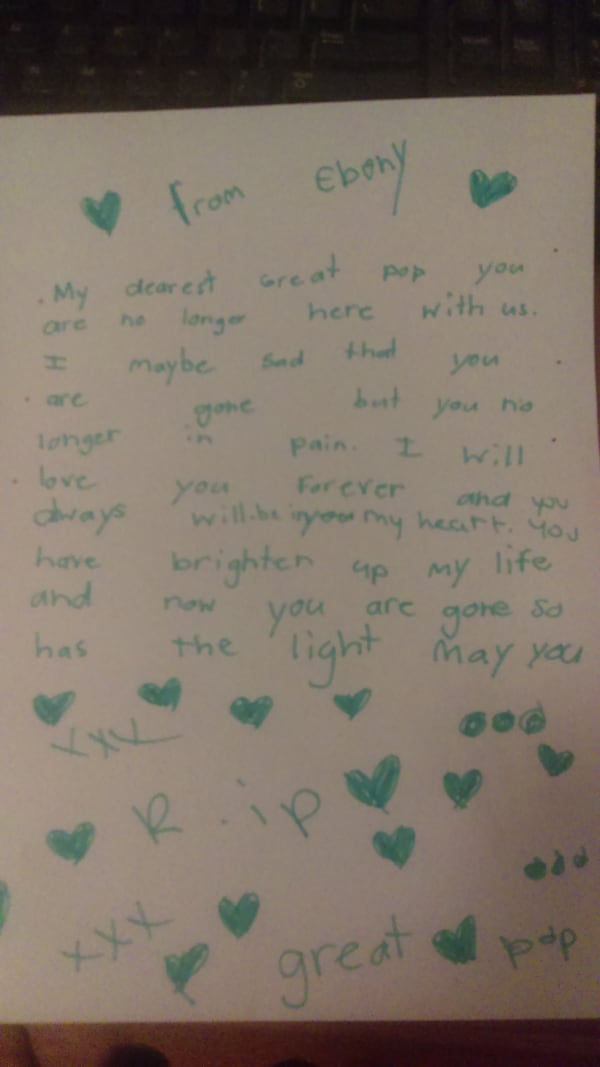 From Ebony
My dearest Great pop you
are no longer here with us.
I maybe sad that you
are gone but you no
longer in pain. I will
love you Forever and you
always will be in my heart. You
have brighten up my life
and now you are gone so
has the light may you
xxx
R.ip
xxx
great pop